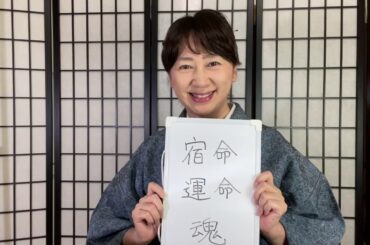 宿命
運命
魂